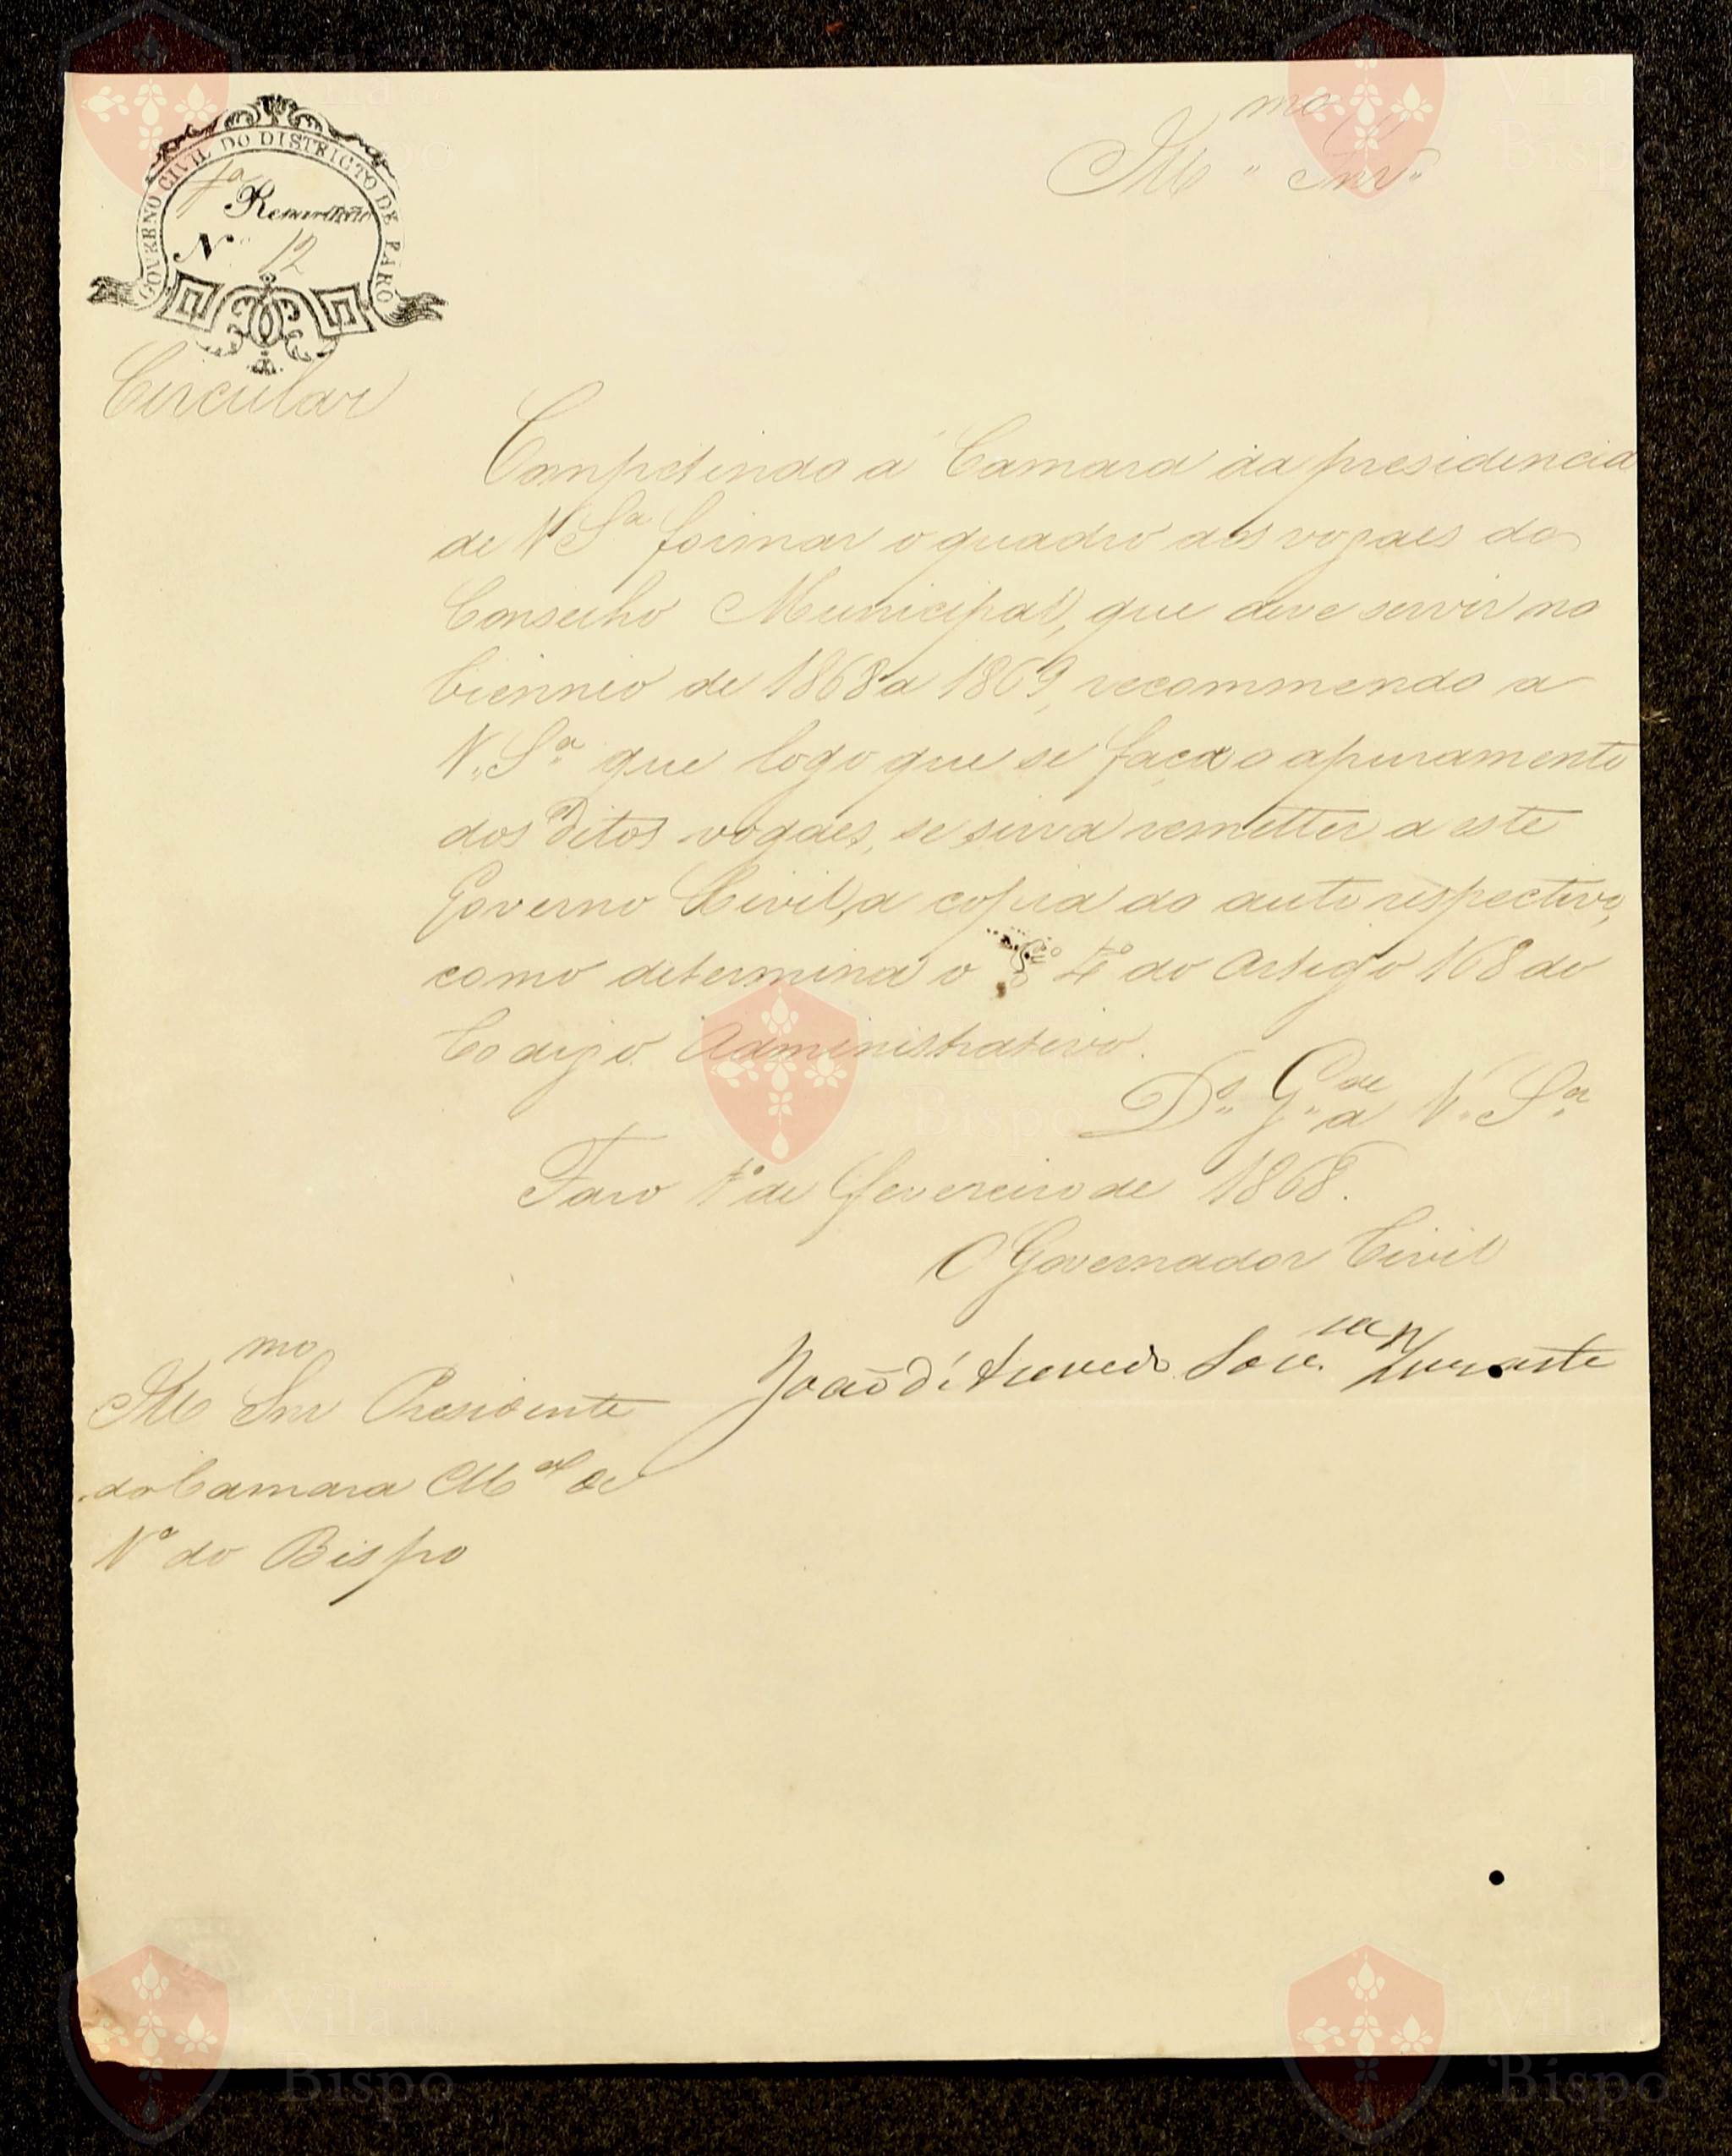 GOVERNO CIVIL DO DISTRICTO DE FARO
1ª Repartição
Nº 12
Circular
Illmo Snr.
Competindo á Camara da presidencia
de V Sª formar o quadro dos vogaes do
Conselho Municipal, que deve servir no
biennio de 1868 a 1869, recommendo a
V. Sª que logo que se faça o apuramento
dos ditos vogaes, se sirva remetter a este
Governo Civil, a copia do auto respectivo,
como determina o § 4º do Artigo 168 do
Codigo Administrativo.
Ds. Gde a V. Sª
Faro 1º de Fevereiro de 1868.
O Governador Civil
João d'Azevedo
Illmo Snr Presidente
da Camara Mal de
Vª do Bispo
Vila do
Bispo